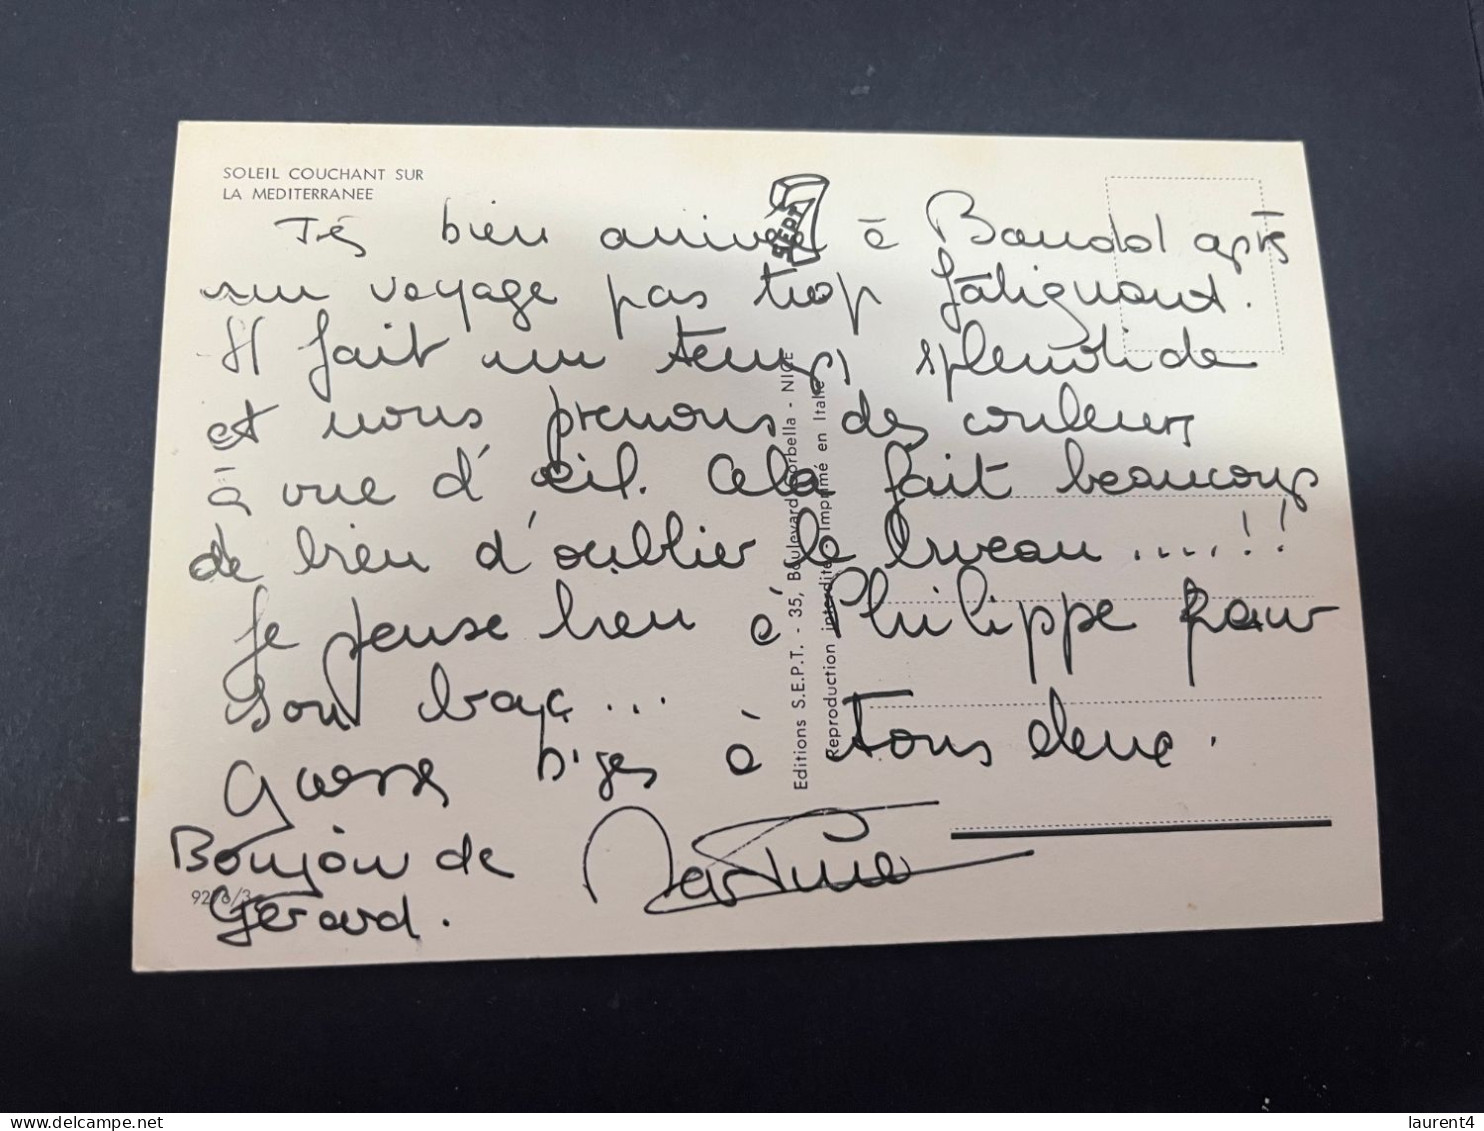 SOLEIL COUCHANT SUR
LA MEDITERRANEE
Très bien arrivée à Bandol après
un voyage pas trop fatiguant.
Il fait un temps splendide
et nous prenons des couleurs
à vue d'œil. Cela fait beaucoup
de bien d'oublier le bureau .....!!
Je pense bien à Philippe pour
son bac ...
Grosses bises à tous deux.
Martine
Bonjour de
Gérard.
9276/3
SEPT
Editions S.E.P.T. - 35, Boulevard Gorbella - NICE
Reproduction interdite Imprimé en Italie
laurent4